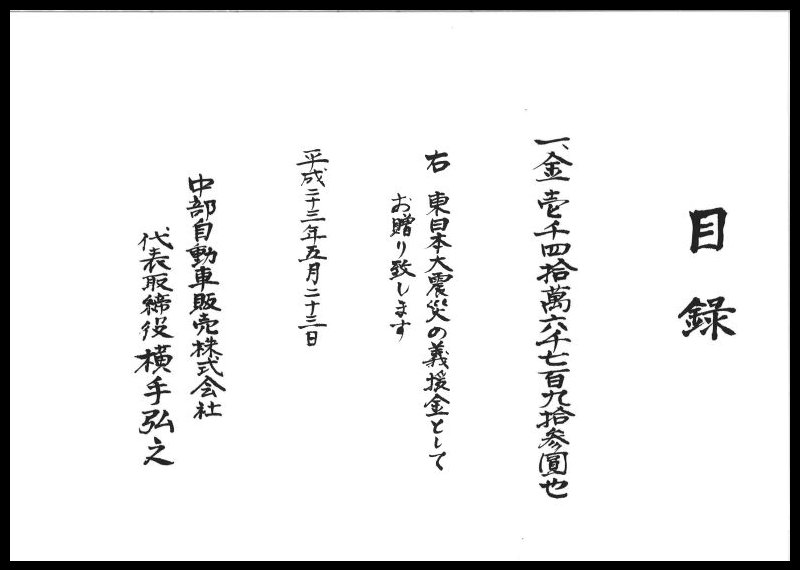 目録
一、金壱千四拾萬六千七百九拾参圓也
右 東日本大震災の義援金として
お贈り致します
平成二十三年五月二十三日
中部自動車販売株式会社
代表取締役 横手弘之